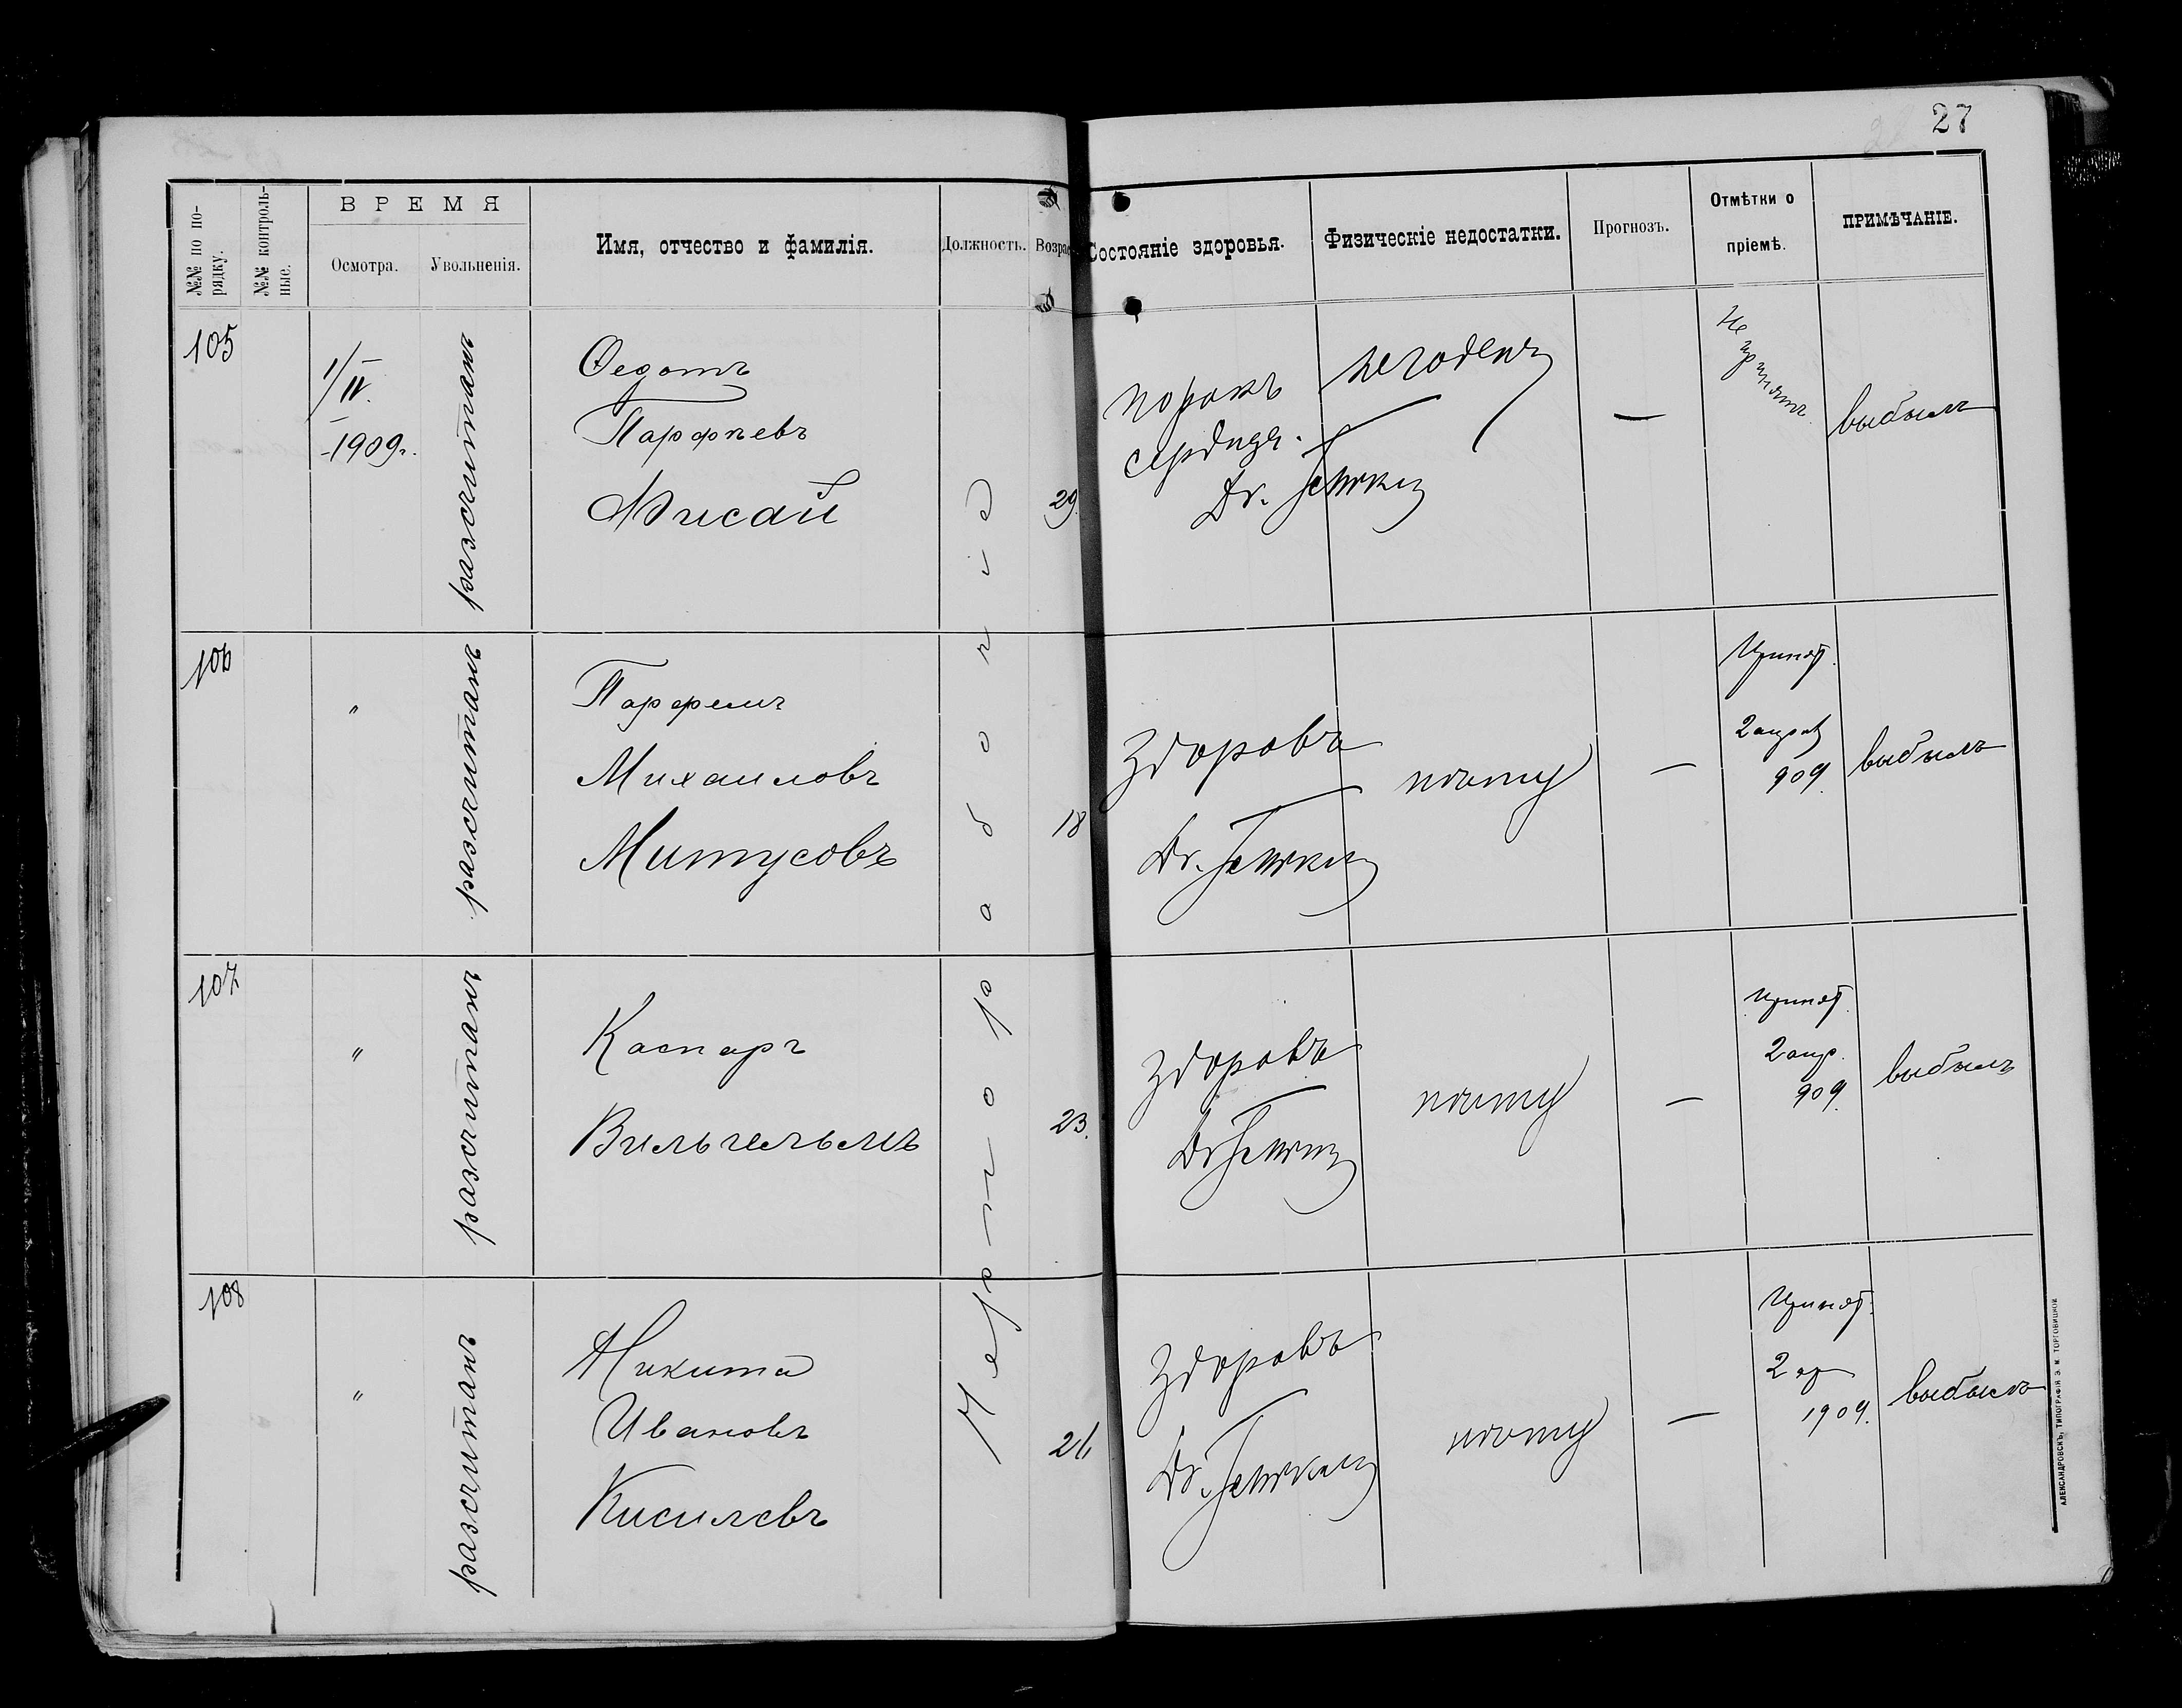 27
№№ по по-
рядку.
№№ контроль-
ные.
ВРЕМЯ
Осмотра.
Увольненія.
Имя, отчество и фамилія.
Должность.
Возрас
Состояніе здоровья.
Физическіе недостатки.
Прогнозъ.
Отмѣтки о
пріемѣ.
ПРИМѢЧАНІЕ.
105
1/IV.
1909г.
разсчитанъ
Ѳедотъ
Парфѣевъ
Лисай
29.
порокъ
сердца.
Dr.
негоденъ
—
Не
принятъ
выбылъ
106
"
разсчитанъ
Парфенъ
Михаиловъ
Митусовъ
18
здоровъ
Dr.
—
Принят.
2 апрѣл
909.
выбылъ
107
"
разсчитанъ
Каспаръ
Вильгельмъ
23.
здоровъ
Dr
—
принят.
2 апр.
909.
выбылъ
108
"
разсчитанъ
Никита
Ивановъ
Кисилевъ
здоровъ
Dr.
—
Принят.
2 ап
1909.
выбылъ
Чернорабочій
АЛЕКСАНДРОВСКЪ, ТИПОГРАФІЯ Э. М. ТОРГОВИЦКОЙ